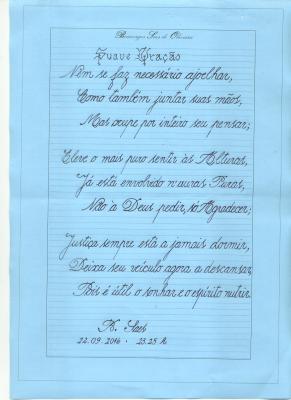 Suave Oração
Nem se faz necessário ajoelhar,
Como também juntar suas mãos,
Mas ocupe por inteiro seu pensar;
Eleve o mais puro sentir às Alturas,
Já está envolvido n'auras Puras,
Não a Deus pedir, só Agradecer;
Justiça sempre está a jamais dormir,
Deixa seu veículo agora a descansar,
Pois é útil o sonhar e o espírito nutrir.
22.09.2016 - 23.25 h